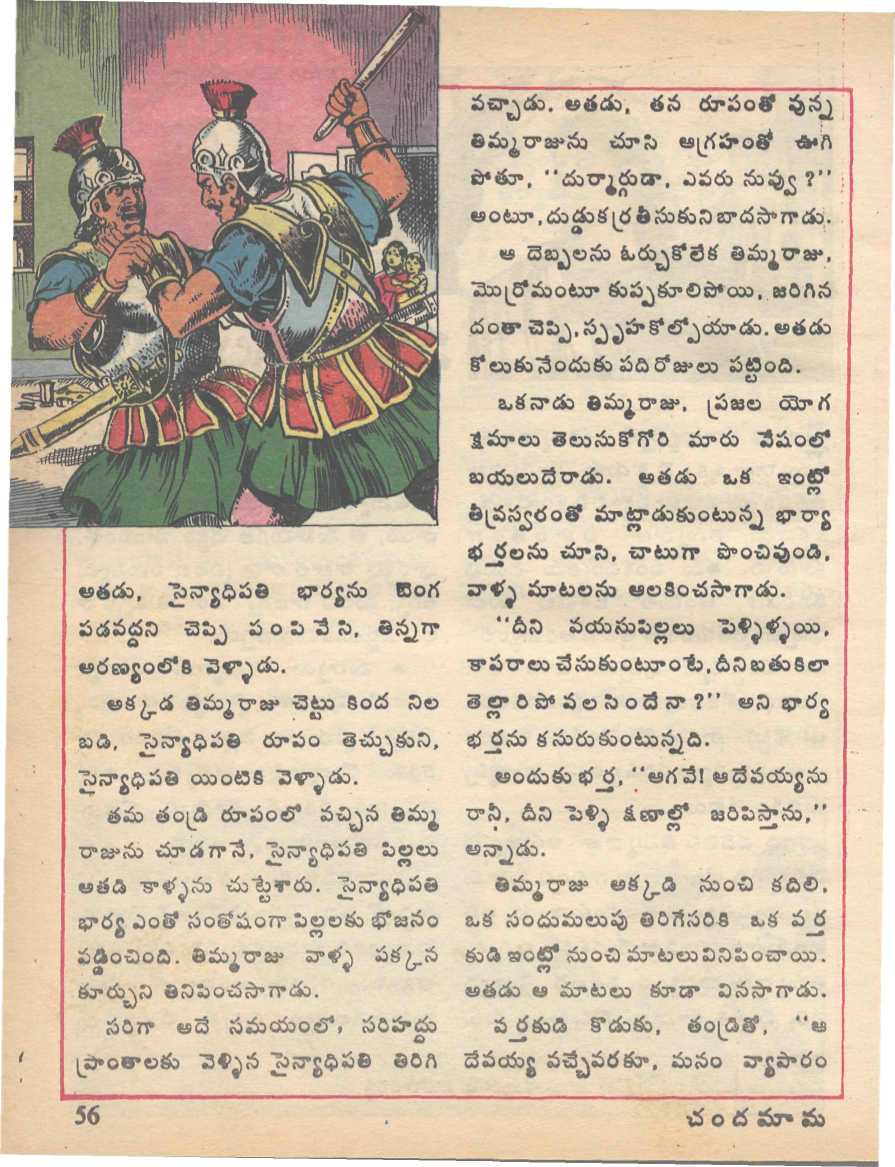 అతడు, సైన్యాధిపతి భార్యను బెంగ
పడవద్దని చెప్పి పంపివేసి, తిన్నగా
అరణ్యంలోకి వెళ్ళాడు.
అక్కడ తిమ్మరాజు చెట్టు కింద నిల
బడి, సైన్యాధిపతి రూపం తెచ్చుకుని,
సైన్యాధిపతి యింటికి వెళ్ళాడు.
తమ తండ్రి రూపంలో వచ్చిన తిమ్మ
రాజును చూడగానే, సైన్యాధిపతి పిల్లలు
అతడి కాళ్ళను చుట్టేశారు. సైన్యాధిపతి
భార్య ఎంతో సంతోషంగా పిల్లలకు భోజనం
వడ్డించింది. తిమ్మరాజు వాళ్ళ పక్కన
కూర్చుని తినిపించసాగాడు.
సరిగా అదే సమయంలో, సరిహద్దు
ప్రాంతాలకు వెళ్ళిన సైన్యాధిపతి తిరిగి
వచ్చాడు. అతడు, తన రూపంతో వున్న
తిమ్మరాజును చూసి ఆగ్రహంతో ఊగి
పోతూ, ‘‘దుర్మార్గుడా, ఎవరు నువ్వు?’’
అంటూ, దుడ్డుకర్ర తీసుకుని బాదసాగాడు.
ఆ దెబ్బలను ఓర్చుకోలేక తిమ్మరాజు,
మొర్రోమంటూ కుప్పకూలిపోయి, జరిగిన
దంతా చెప్పి, స్పృహ కోల్పోయాడు. అతడు
కోలుకునేందుకు పది రోజులు పట్టింది.
ఒకనాడు తిమ్మరాజు, ప్రజల యోగ
క్షేమాలు తెలుసుకోగోరి మారు వేషంలో
బయలుదేరాడు. అతడు ఒక ఇంట్లో
తీవ్రస్వరంతో మాట్లాడుకుంటున్న భార్యా
భర్తలను చూసి, చాటుగా పొంచివుండి,
వాళ్ళ మాటలను ఆలకించసాగాడు.
‘‘దీని వయసుపిల్లలు పెళ్ళిళ్ళయి,
కాపరాలు చేసుకుంటూంటే, దీని బతుకిలా
తెల్లారి పోవలసిందేనా?’’ అని భార్య
భర్తను కసురుకుంటున్నది.
అందుకు భర్త, ‘‘ఆగవే! ఆ దేవయ్యను
రానీ, దీని పెళ్ళి క్షణాల్లో జరిపిస్తాను,’’
అన్నాడు.
తిమ్మరాజు అక్కడి నుంచి కదిలి,
ఒక సందుమలుపు తిరిగేసరికి ఒక వర్త
కుడి ఇంట్లో నుంచి మాటలు వినిపించాయి.
అతడు ఆ మాటలు కూడా వినసాగాడు.
వర్తకుడి కొడుకు, తండ్రితో, ‘‘ఆ
దేవయ్య వచ్చేవరకూ, మనం వ్యాపారం
56
చందమామ